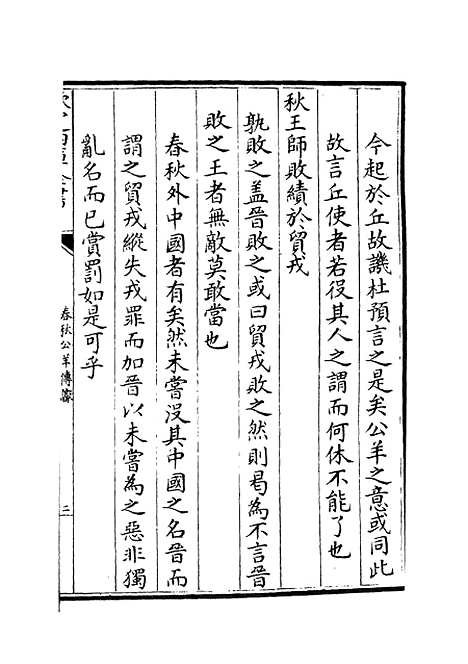 今起於丘故譏杜預言之是矣公羊之意或同此
故言丘使者若役其人之謂而何休不能了也
秋王師敗績於貿戎
孰敗之盖晉敗之或曰貿戎敗之然則曷為不言晉
敗之王者無敵莫敢當也
春秋外中國者有矣然未嘗沒其中國之名晉而
謂之貿戎縱失戎罪而加晉以未嘗為之惡非獨
亂名而已賞罰如是可乎
欽定四庫全書
春秋公羊傳讞
三